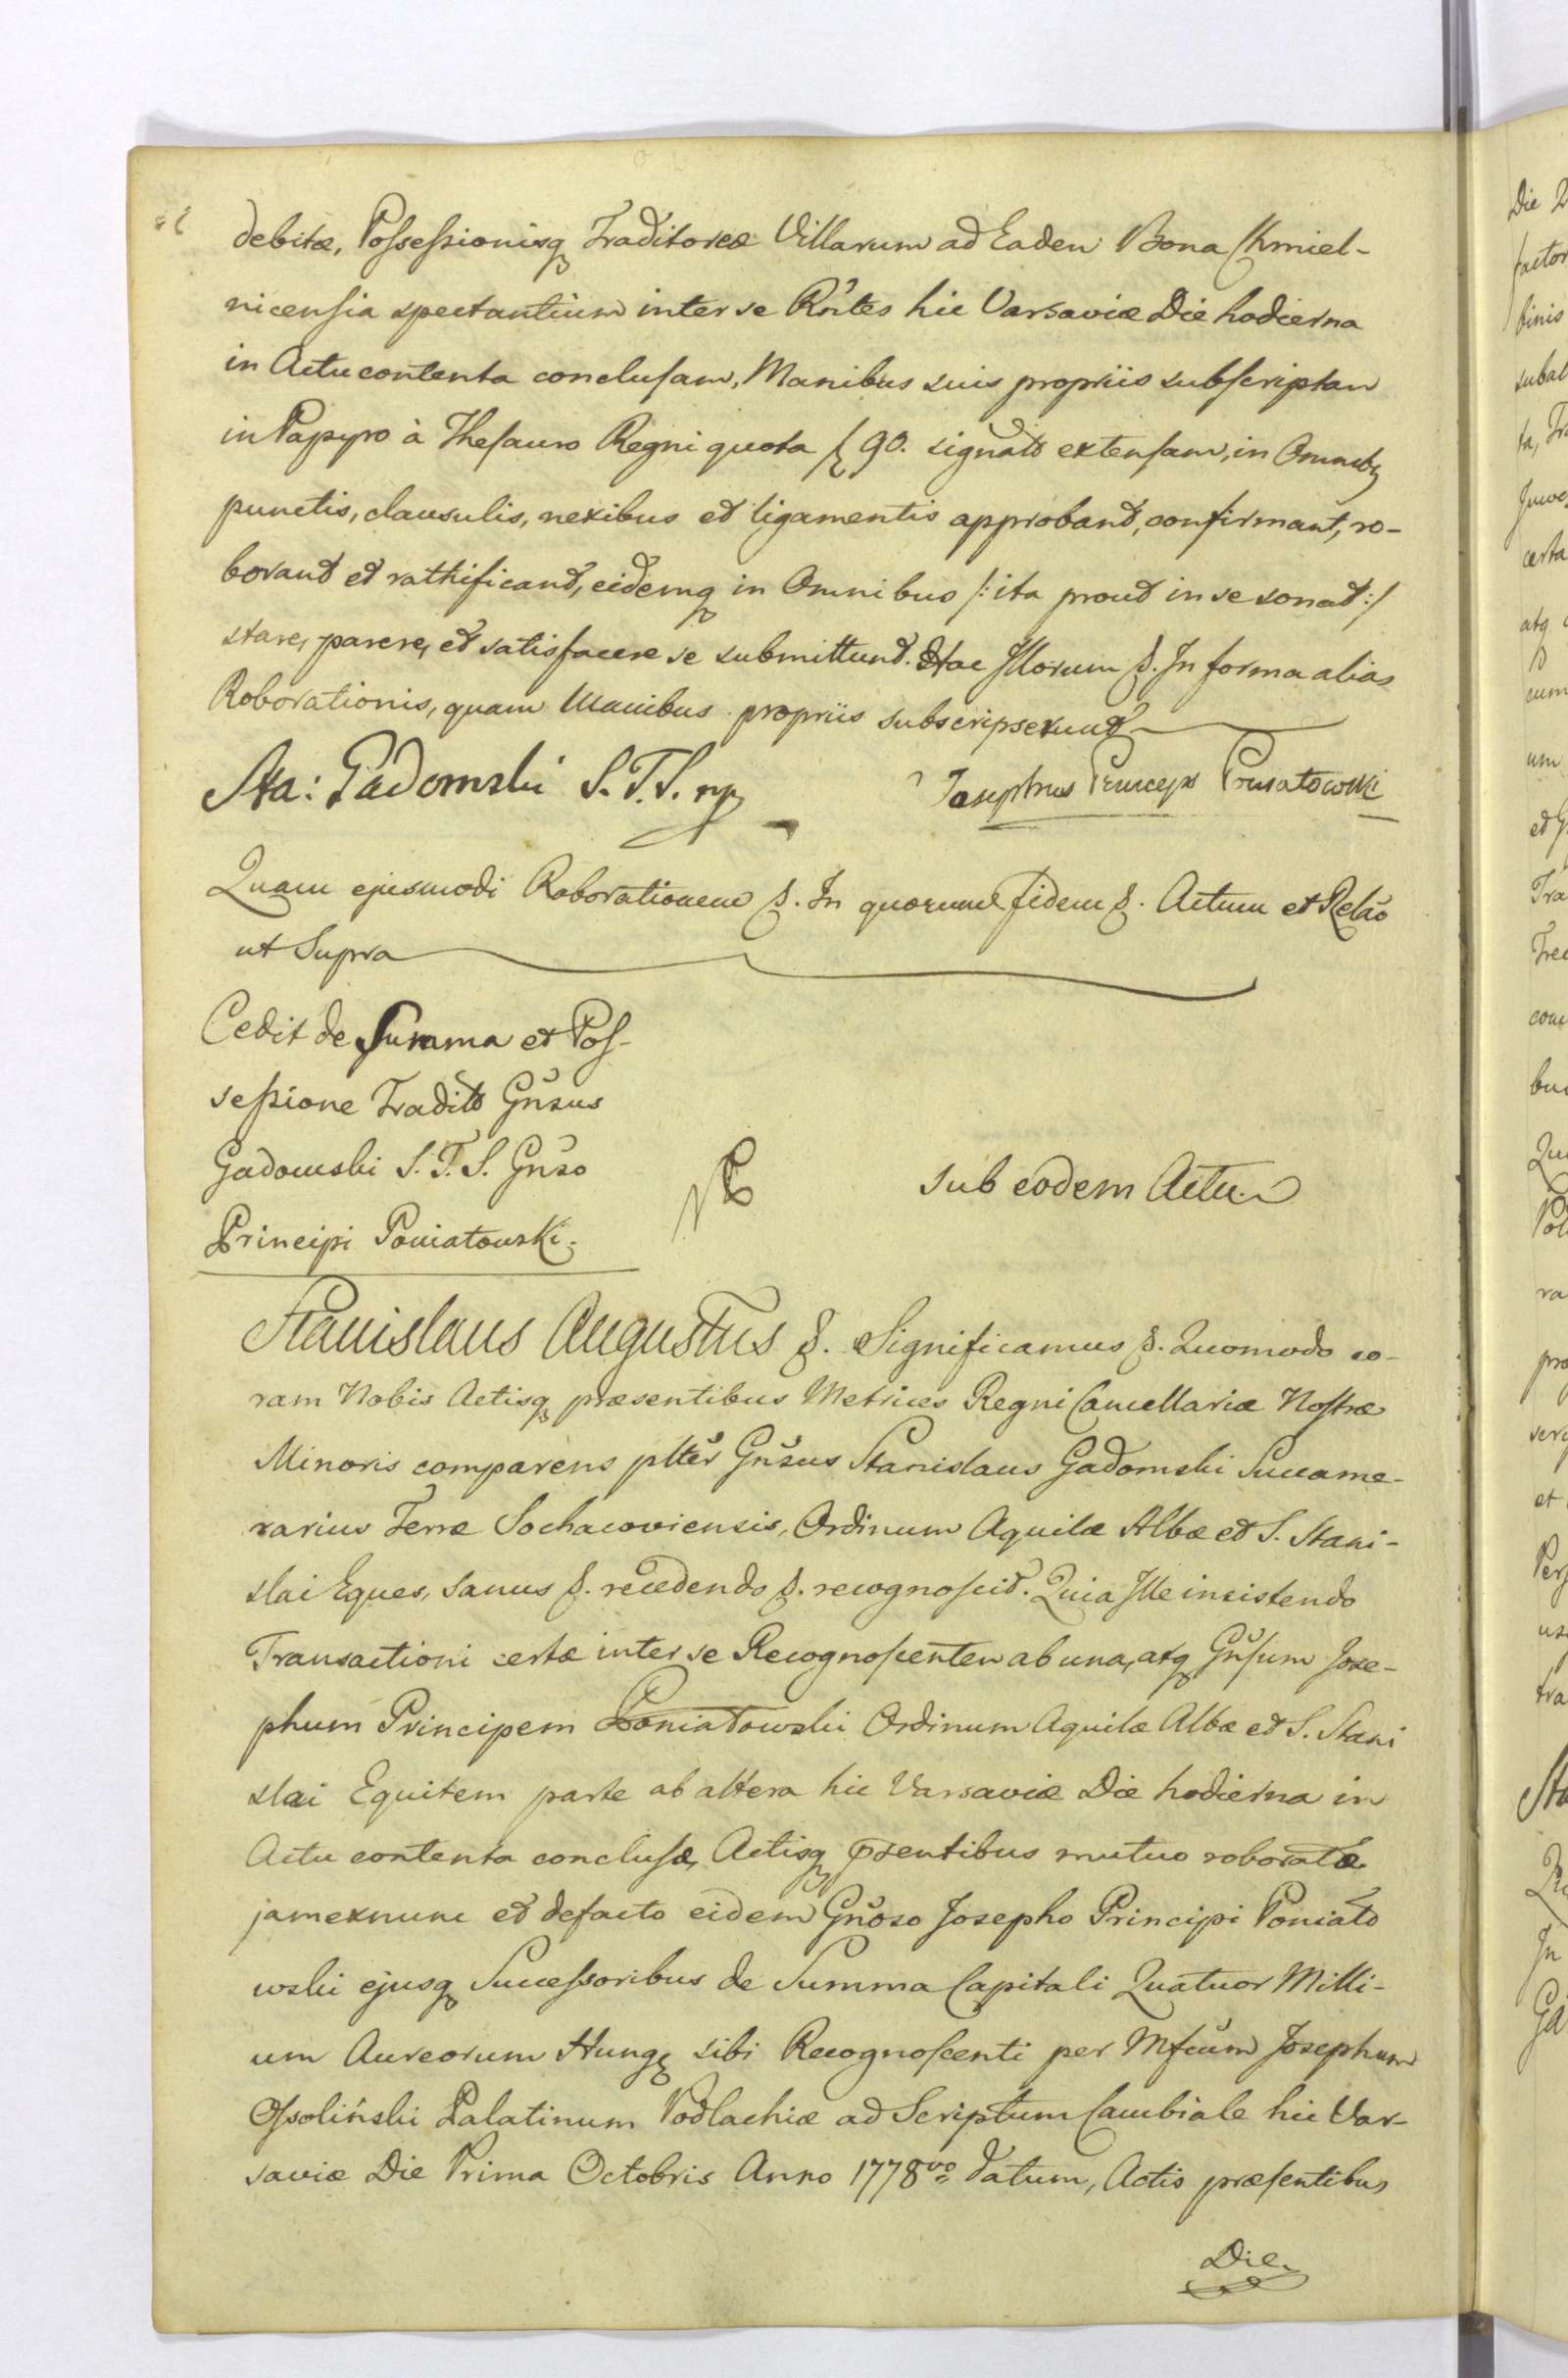 debitæ, Possessionisq Traditoreæ Villarum ad Eaden Bona Chmiel-
nicensia spectantium inter se Rñtes hic Varsaviæ Die hodierna
in Actu contenta conclusam, Manibus suis propriis subscriptam
in Papyro à Thesauro Regni quota f 90. signato extensam, in Omnibq
punctis, clausulis, nexibus et ligamentis approbant, confirmant, ro-
borant et rathificant, eidemq in Omnibus /: ita prout in se sonat :/
stare, parere, et satisfacere se submittunt. Hac Illorum &. In forma alias
Roborationis, quam Manibus propriis subscripserunt
Sta: Gadomski S. T. S. mp
Josephus Princeps Poniatowski
Quam ejusmodi Roborationem &. In quorum fidem &. Actum et Relão
ut Supra
Cedit de Summa et Pos-
sessione Tradito Gñsus
Gadomski S. T. S. Gñso
Principi Poniatowski.
sub eodem Actu
Stanislaus Augustus &. Significamus &. Quomodo co-
ram Nobis Actisq præsentibus Metrices Regni Cancellariæ Nostræ
Minoris comparens plter Gñsus Stanislaus Gadomski Succame-
rarius Terræ Sochacoviensis, Ordinum Aquilæ Albæ et S. Stani-
slai Eques, sanus &. recedendo &. recognoscit. Quia Ille insistendo
Transactioni certæ inter se Recognoscentem ab una, atq Gñsum Jose-
phum Principem Poniatowski Ordinum Aquilæ Albæ et S. Stani
slai Equitem parte ab altera hic Varsaviæ Die hodierna in
Actu contenta conclusæ, Actisq præntibus mutuo roboratæ
jamexnunc et defacto eidem Gñoso Josepho Principi Poniato
wski ejusq Successoribus de Summa Capitali Quatuor Milli-
um Aureorum Hungq sibi Recognoscenti per Mfcum Josephum
Ossoliński Palatinum Podlachiæ ad Scriptum Cambiale hic Var-
saviæ Die Prima Octobris Anno 1778vo datum, Actis præsentibus
Die